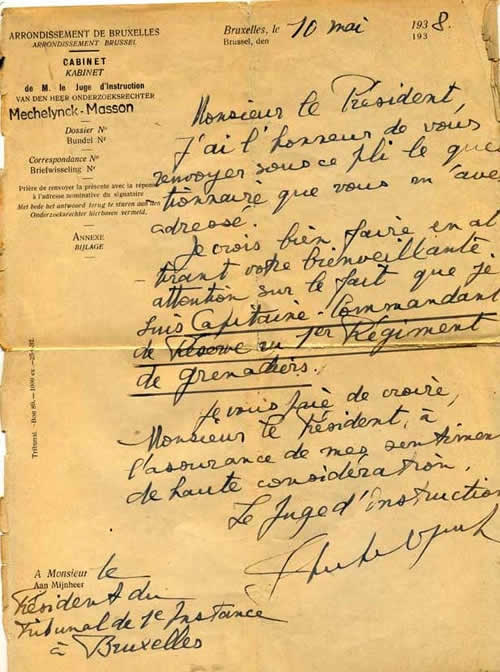 ARRONDISSEMENT DE BRUXELLES
ARRONDISSEMENT BRUSSEL
CABINET
KABINET
de M. le Juge d'Instruction
VAN DEN HEER ONDERZOEKSRECHTER
Mechelynck-Masson
Dossier N°
Bundel Nr
Correspondance N°
Briefwisseling Nr
Prière de renvoyer la présente avec la réponse
à l'adresse nominative du signataire
Met bede het antwoord terug te sturen aan den
Onderzoeksrechter hierboven vermeld.
ANNEXE
BIJLAGE
Bruxelles, le 10 mai 1938.
Brussel, den 193
Monsieur le Président,
J'ai l'honneur de vous
renvoyer sous ce pli le ques
tionnaire que vous m'avez
adressé.
Je crois bien faire en at
tirant votre bienveillante
attention sur le fait que je
suis Capitaine-Commandant
de Réserve au 1er Régiment
de grenadiers.
Je vous prie de croire,
Monsieur le Président, à
l'assurance de mes sentiments
de haute considération.
Le Juge d'Instruction
A Monsieur le
Aan Mijnheer
Président du
Tribunal de 1e Instance
à Bruxelles